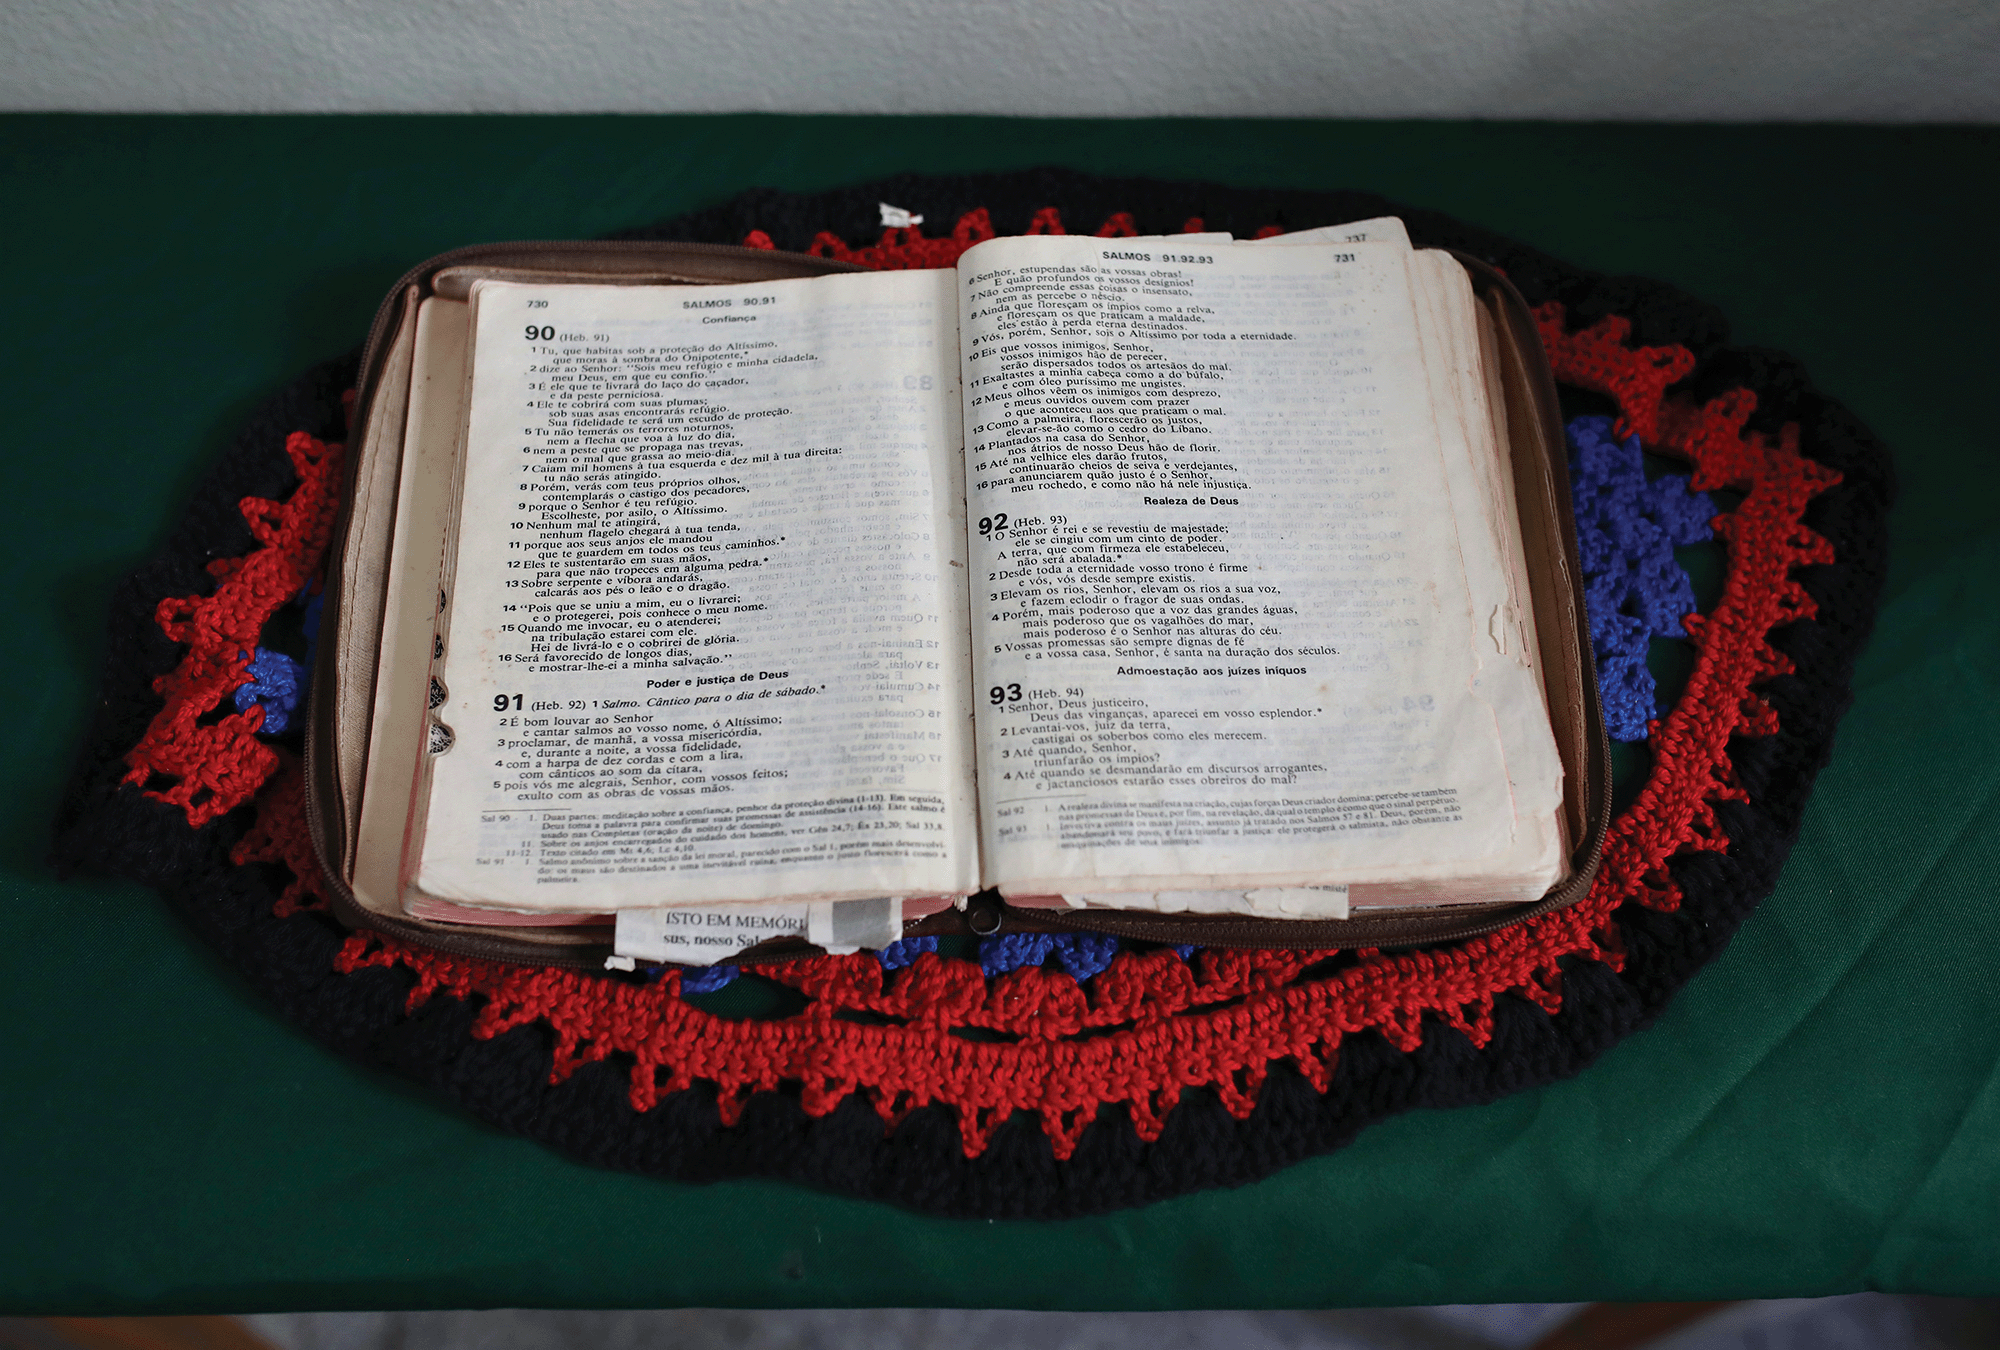 730
SALMOS 90.91
Confiança
90 (Heb. 91)
1 Tu, que habitas sob a proteção do Altíssimo,
que moras à sombra do Onipotente,*
2 dize ao Senhor: "Sois meu refúgio e minha cidadela,
meu Deus, em que eu confio."
3 É ele que te livrará do laço do caçador,
e da peste perniciosa.
4 Ele te cobrirá com suas plumas;
sob suas asas encontrarás refúgio.
Sua fidelidade te será um escudo de proteção.
5 Tu não temerás os terrores noturnos,
nem a flecha que voa à luz do dia,
6 nem a peste que se propaga nas trevas,
nem o mal que grassa ao meio-dia.
7 Caiam mil homens à tua esquerda e dez mil à tua direita:
tu não serás atingido.
8 Porém, verás com teus próprios olhos,
contemplarás o castigo dos pecadores,
9 porque o Senhor é teu refúgio.
Escolheste, por asilo, o Altíssimo.
10 Nenhum mal te atingirá,
nenhum flagelo chegará à tua tenda,
11 porque aos seus anjos ele mandou
que te guardem em todos os teus caminhos.*
12 Eles te sustentarão em suas mãos,
para que não tropeces em alguma pedra.*
13 Sobre serpente e víbora andarás,
calcarás aos pés o leão e o dragão.
14 "Pois que se uniu a mim, eu o livrarei;
e o protegerei, pois conhece o meu nome.
15 Quando me invocar, eu o atenderei;
na tribulação estarei com ele.
Hei de livrá-lo e o cobrirei de glória.
16 Será favorecido de longos dias,
e mostrar-lhe-ei a minha salvação."
Poder e justiça de Deus
91 (Heb. 92) 1 Salmo. Cântico para o dia de sábado.*
2 É bom louvar ao Senhor
e cantar salmos ao vosso nome, ó Altíssimo;
3 proclamar, de manhã, a vossa misericórdia,
e, durante a noite, a vossa fidelidade,
4 com a harpa de dez cordas e com a lira,
com cânticos ao som da cítara,
5 pois vós me alegrais, Senhor, com vossos feitos;
exulto com as obras de vossas mãos.
Sal 90 - 1. Duas partes: meditação sobre a confiança, penhor da proteção divina (1-13). Em seguida,
Deus toma a palavra para confirmar suas promessas de assistência (14-16). Este salmo é
usado nas Completas (oração da noite) de domingo.
11. Sobre os anjos encarregados do cuidado dos homens, ver Gên 24,7; Êx 23,20; Sal 33,8.
11-12. Texto citado em Mt 4,6; Lc 4,10.
Sal 91 - 1. Salmo anônimo sobre a sanção da lei moral, parecido com o Sal 1, porém mais desenvolvi-
do: os maus são destinados a uma inevitável ruína, enquanto o justo florescerá como a
palmeira.
ISTO EM MEMÓRI
sus, nosso Sal
737
SALMOS 91.92.93
731
6 Senhor, estupendas são as vossas obras!
E quão profundos os vossos desígnios!
7 Não compreende essas coisas o insensato,
nem as percebe o néscio.
8 Ainda que floresçam os ímpios como a relva,
e floresçam os que praticam a maldade,
eles estão à perda eterna destinados.
9 Vós, porém, Senhor, sois o Altíssimo por toda a eternidade.
10 Eis que vossos inimigos, Senhor,
vossos inimigos hão de perecer,
serão dispersados todos os artesãos do mal.
11 Exaltastes a minha cabeça como a do búfalo,
e com óleo puríssimo me ungistes.
12 Meus olhos vêem os inimigos com desprezo,
e meus ouvidos ouvem com prazer
o que aconteceu aos que praticam o mal.
13 Como a palmeira, florescerão os justos,
elevar-se-ão como o cedro do Líbano.
14 Plantados na casa do Senhor,
nos átrios de nosso Deus hão de florir.
15 Até na velhice eles darão frutos,
continuarão cheios de seiva e verdejantes,
16 para anunciarem quão justo é o Senhor,
meu rochedo, e como não há nele injustiça.
Realeza de Deus
92 (Heb. 93)
1 O Senhor é rei e se revestiu de majestade;
ele se cingiu com um cinto de poder.
A terra, que com firmeza ele estabeleceu,
não será abalada.*
2 Desde toda a eternidade vosso trono é firme
e vós, vós desde sempre existis.
3 Elevam os rios, Senhor, elevam os rios a sua voz,
e fazem eclodir o fragor de suas ondas.
4 Porém, mais poderoso que a voz das grandes águas,
mais poderoso que os vagalhões do mar,
mais poderoso é o Senhor nas alturas do céu.
5 Vossas promessas são sempre dignas de fé
e a vossa casa, Senhor, é santa na duração dos séculos.
Admoestação aos juízes iníquos
93 (Heb. 94)
1 Senhor, Deus justiceiro,
Deus das vinganças, aparecei em vosso esplendor.*
2 Levantai-vos, juiz da terra,
castigai os soberbos como eles merecem.
3 Até quando, Senhor,
triunfarão os ímpios?
4 Até quando se desmandarão em discursos arrogantes,
e jactanciosos estarão esses obreiros do mal?
Sal 92 1. A realeza divina se manifesta na criação, cujas forças Deus criador domina; percebe-se também
nas promessas de Deus e, por fim, na revelação, da qual o templo é como que o sinal perpétuo.
Sal 93 1. Invectiva contra os maus juízes, assunto já tratado nos Salmos 57 e 81. Deus, porém, não
abandonará seu povo, e fará triunfar a justiça: ele protegerá o salmista, não obstante as
maquinações de seus inimigos.